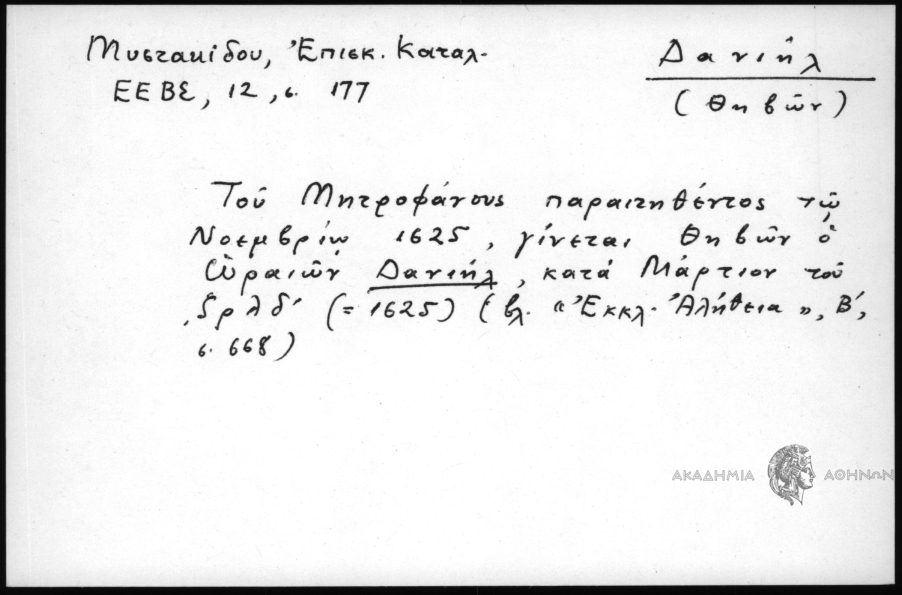 Μυστακίδου, Ἐπισκ. Καταλ.
ΕΕΒΣ, 12, σ. 177
Δανιήλ
(Θηβῶν)
Τοῦ Μητροφάνους παραιτηθέντος τῷ
Νοεμβρίῳ 1625, γίνεται Θηβῶν ὁ
Ὠραιῶν Δανιήλ, κατά Μάρτιον τοῦ
͵ζρλδ´ (= 1625) (βλ. «Ἐκκλ. Ἀλήθεια», Β´,
σ. 668)
ΑΚΑΔΗΜΙΑ ΑΘΗΝΩΝ